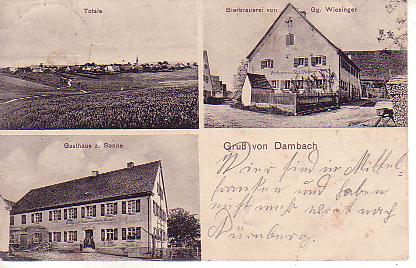 Totale
Bierbrauerei von Gg. Wiesinger
Gasthaus z. Sonne
Gruß von Dambach
Wir sind in Mittel-
franken und haben
nicht mehr weit nach
Nürnberg.